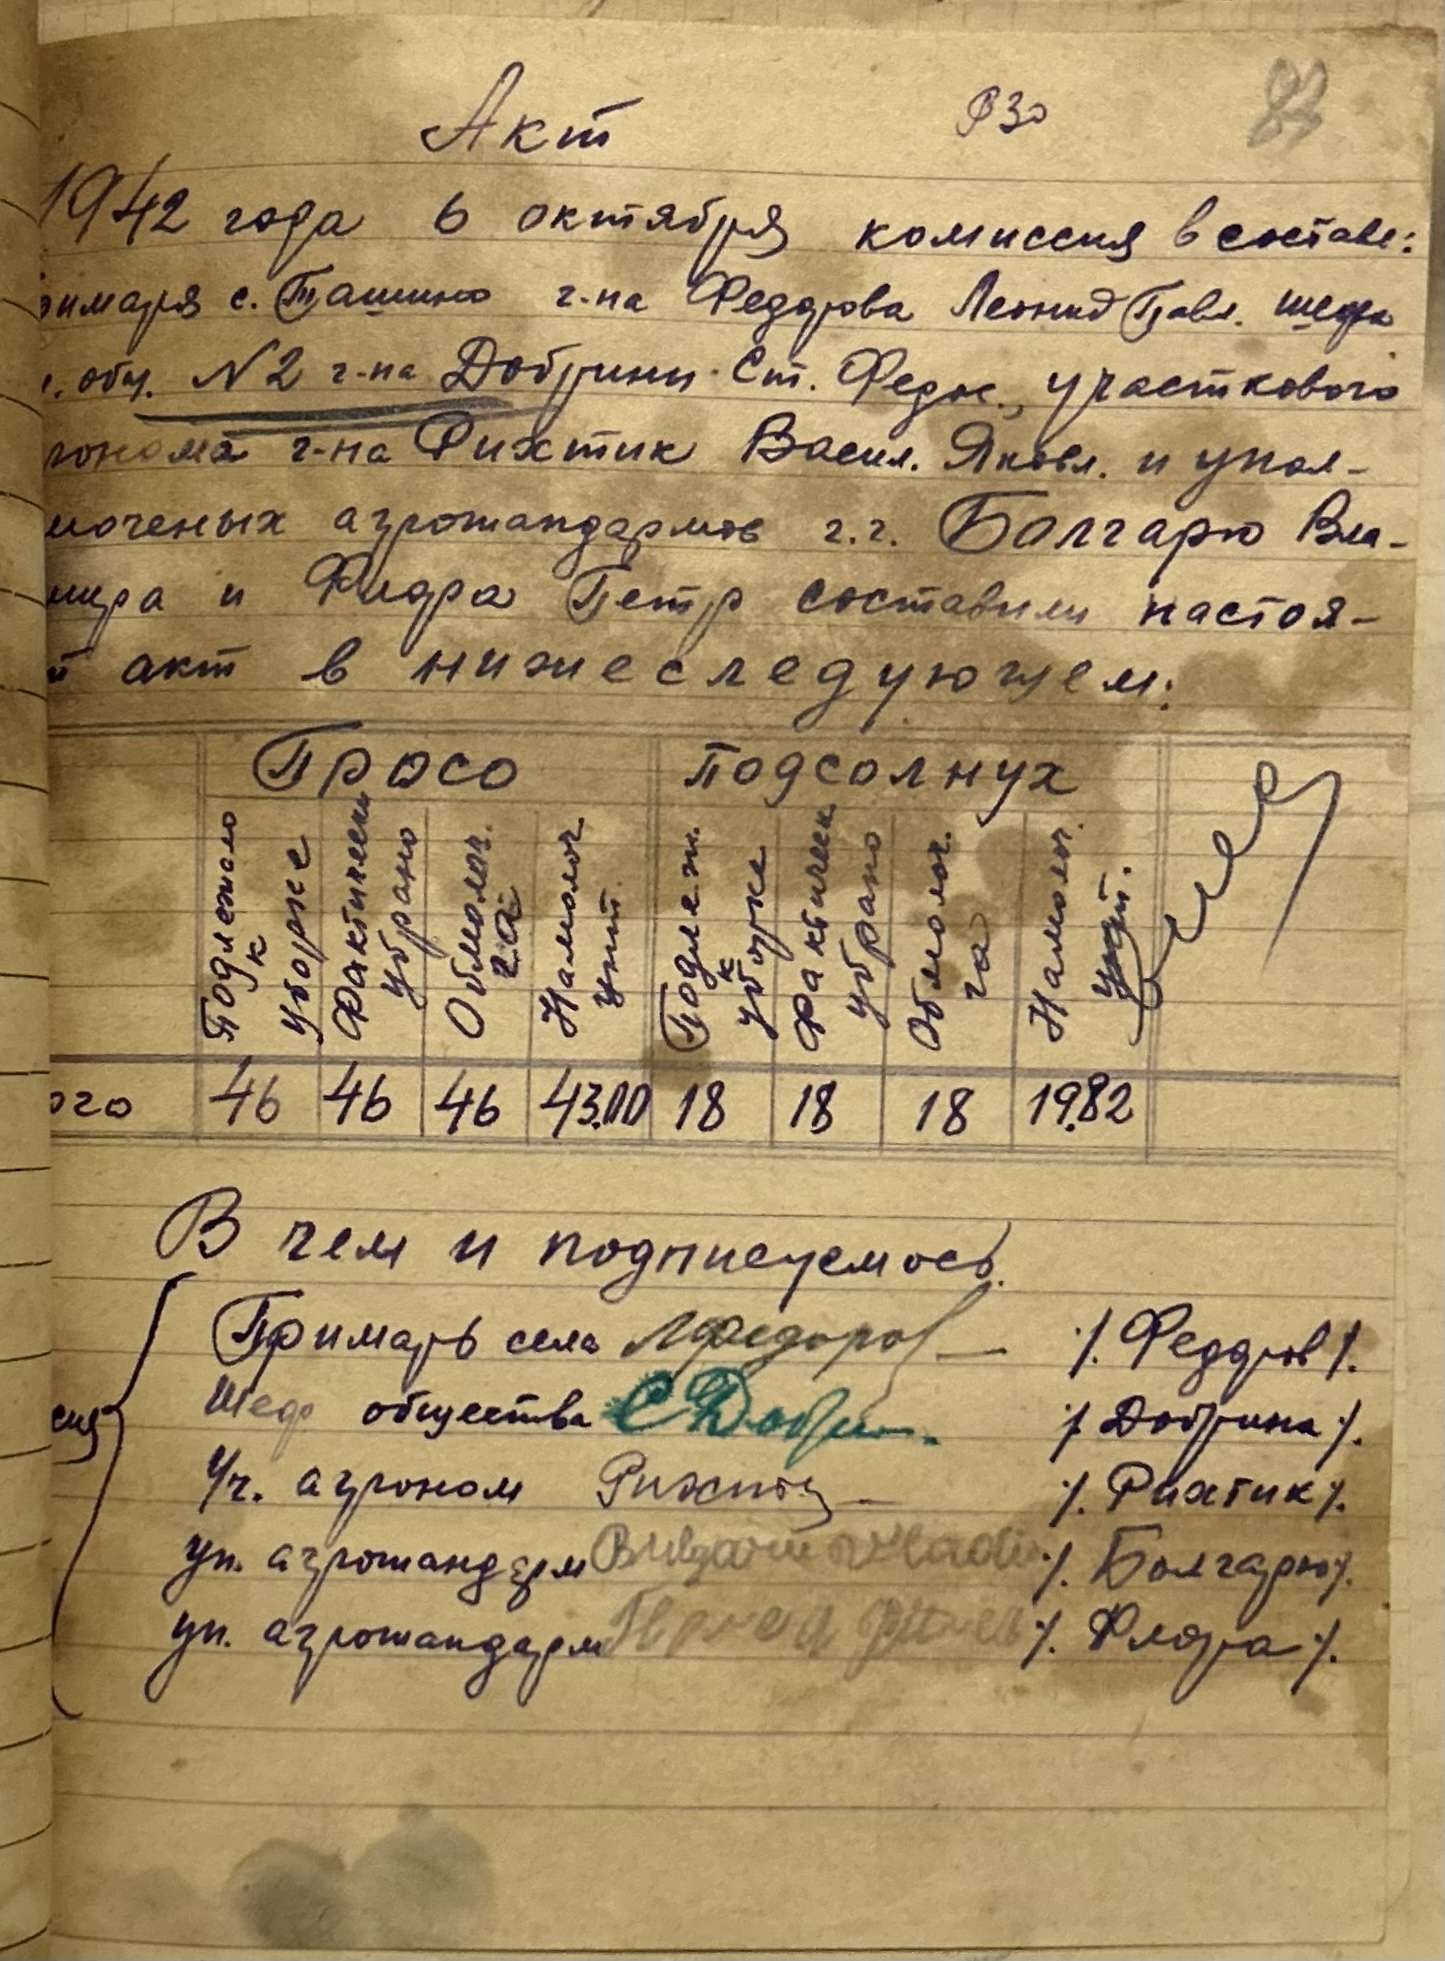 Акт
83
1942 года 6 октября комиссия в составе:
имаря с. Ташино г-на Феддрова Леонид Павл. шефа
с. общ. N2 г-на Добрини Ст. Федос., участкового
гронома г-на Рихтик Васил. Яковл. и упол-
моченых агрожандармов г.г. Болгарю Вла-
мира и Флоря Петр составили настоя-
й акт в нижеследующем:
Просо Подсолнух
Подлежало к уборке Фактически убрано Обмолоч. га Намолоч унт. Подлеж. к уборке Фактическ убрано Обмолоч. га Намолоч. унт.
ого 46 46 46 43.00 18 18 18 19.82
В чем и подписуемось.
Примарь села ЛФедоров /. Феддров /.
Шеф общества СДобрин /. Добрина /.
сия
Уч. агроном Рихтик /. Рихтик /.
уп. агрожандарм Bulgariu Vladi /. Болгарю /.
уп. агрожандарм /. Флоря /.